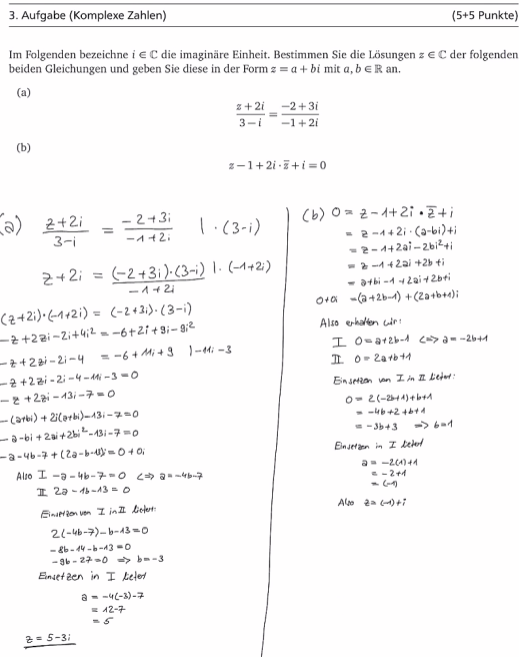 3. Aufgabe (Komplexe Zahlen) (5+5 Punkte)
Im Folgenden bezeichne i ∈ ℂ die imaginäre Einheit. Bestimmen Sie die Lösungen z ∈ ℂ der folgenden
beiden Gleichungen und geben Sie diese in der Form z = a + bi mit a, b ∈ ℝ an.
(a)
(z + 2i)/(3 − i) = (−2 + 3i)/(−1 + 2i)
(b)
z − 1 + 2i · z̅ + i = 0
(a) (z+2i)/(3-i) = (-2+3i)/(-1+2i) | · (3-i)
z+2i = ((-2+3i)·(3-i))/(-1+2i) | · (-1+2i)
(z+2i)·(-1+2i) = (-2+3i)·(3-i)
-z+2zi-2i+4i² = -6+2i+9i-3i²
-z+2zi-2i-4 = -6+11i+3 |-11i-3
-z+2zi-2i-4-11i-3=0
-z+2zi-13i-7=0
-(a+bi)+2i(a+bi)-13i-7=0
-a-bi+2ai+2bi²-13i-7=0
-a-4b-7+(2a-b-13)i=0+0i
Also I -a-4b-7=0 <=> a=-4b-7
II 2a-1b-13=0
Einsetzen von I in II liefert:
2(-4b-7)-b-13=0
-8b-14-b-13=0
-9b-27=0 => b=-3
Einsetzen in I liefert
a = -4(-3)-7
= 12-7
= 5
z = 5-3i
(b) 0 = z-1+2i · z̅+i
= z-1+2i·(a-bi)+i
= z-1+2ai-2bi²+i
= z-1+2ai+2b+i
= a+bi-1+2ai+2b+i
0+0i =(a+2b-1)+(2a+b+1)i
Also erhalten wir:
I 0=a+2b-1 <=> a=-2b+1
II 0=2a+b+1
Einsetzen von I in II liefert:
0 = 2(-2b+1)+b+1
= -4b+2+b+1
= -3b+3 => b=1
Einsetzen in I liefert
a = -2(1)+1
= -2+1
= (-1)
Also z=(-1)+i